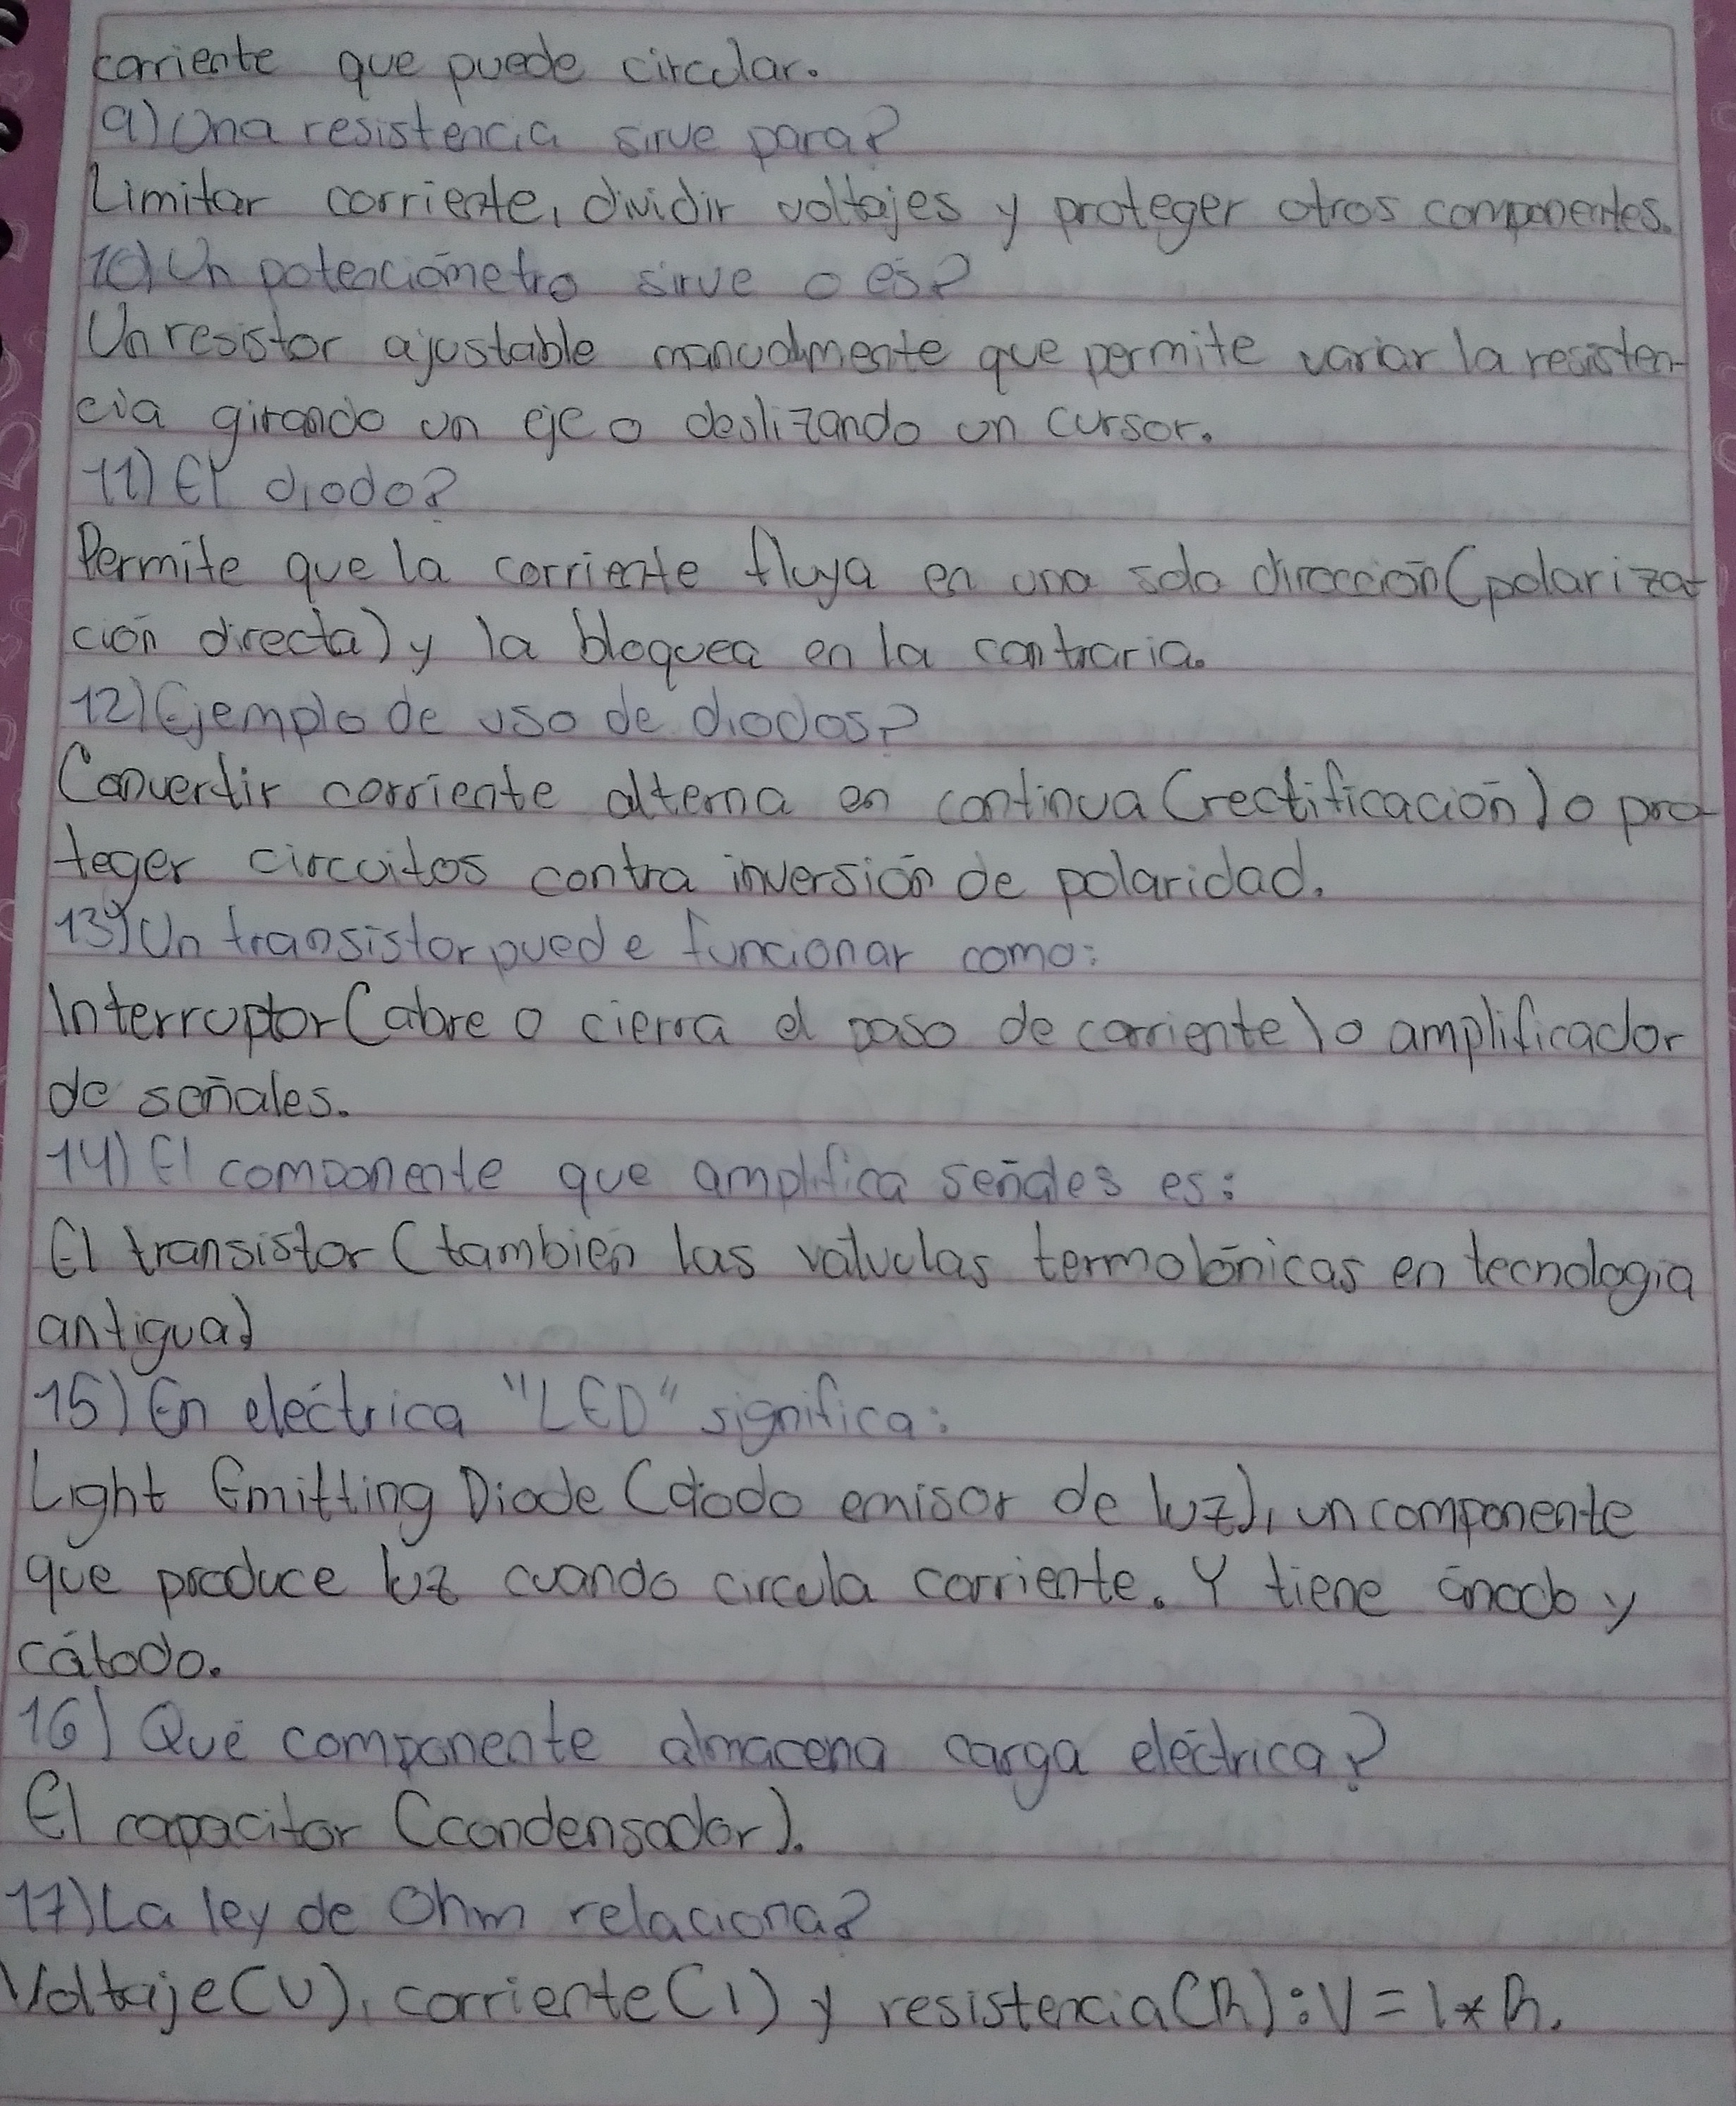 corriente que puede circular.
9) Una resistencia sirve para?
Limitar corriente, dividir voltajes y proteger otros componentes.
10) Un potenciómetro sirve o es?
Un resistor ajustable manualmente que permite variar la resisten-
cia girando un eje o deslizando un cursor.
11) El diodo?
Permite que la corriente fluya en una sola dirección (polariza-
ción directa) y la bloquea en la contraria.
12) Ejemplo de uso de diodos?
Convertir corriente alterna en continua (rectificación) o pro-
teger circuitos contra inversión de polaridad.
13) Un transistor puede funcionar como:
Interruptor (abre o cierra el paso de corriente) o amplificador
de señales.
14) El componente que amplifica señales es:
El transistor (tambien las válvulas termolónicas en tecnologia
antigua)
15) En eléctrica "LED" significa:
Light Emitting Diode (diodo emisor de luz), un componente
que produce luz cuando circula corriente. Y tiene ánodo y
cátodo.
16) Qué componente almacena carga eléctrica?
El capacitor (condensador).
17) La ley de Ohm relaciona?
Voltaje (V), corriente (I) y resistencia (R): V = I * R.